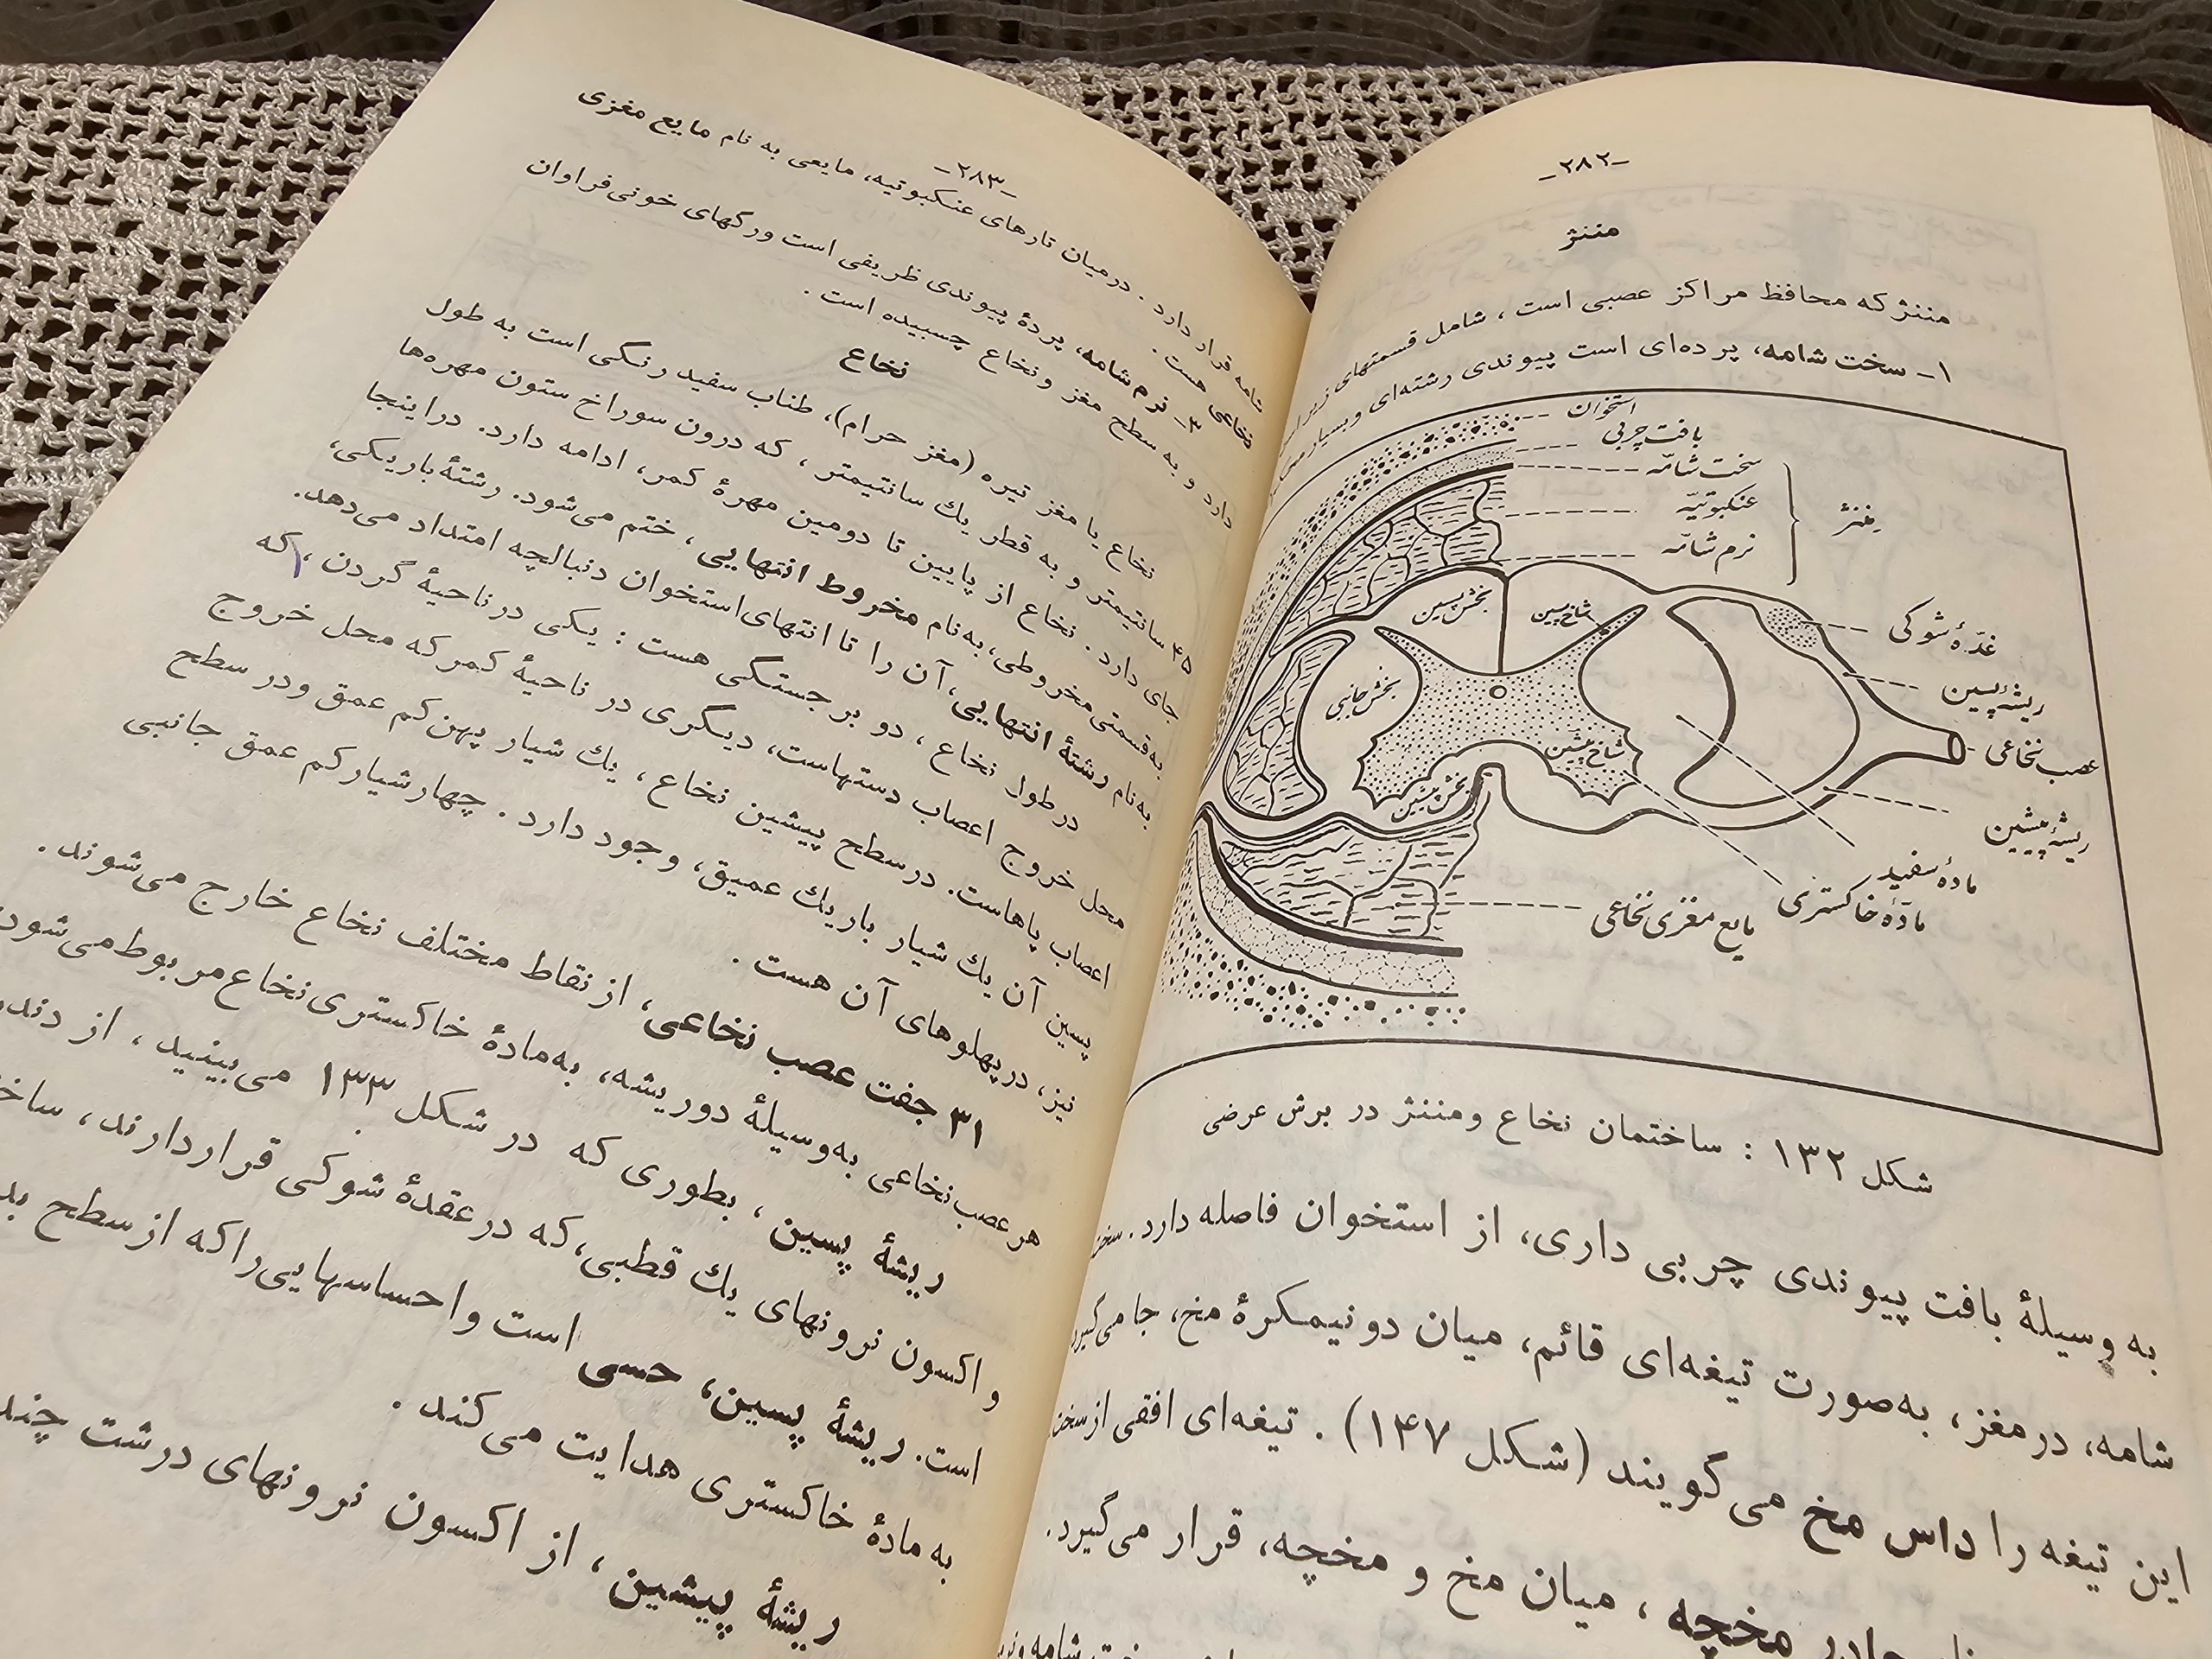 -۲۸۲-
مننژ
مننژ که محافظ مراکز عصبی است، شامل قسمتهای زیر
۱- سخت شامه، پرده‌ای است پیوندی رشته‌ای و بسیار
استخوان
بافت چربی
سخت شامّه
عنکبوتیّه
نرم شامّه
مننژ
بخش پسین
شاخ پسین
غدّهٔ شوکی
ریشهٔ پسین
بخش جانبی
عصب نخاعی
شاخ پیشین
بخش پیشین
ریشهٔ پیشین
مادهٔ سفید
مادّهٔ خاکستری
مایع مغزی نخاعی
شکل ۱۳۲ : ساختمان نخاع و مننژ در برش عرضی
به وسیلهٔ بافت پیوندی چربی داری، از استخوان فاصله دارد. سخت
شامه، در مغز، به‌صورت تیغه‌ای قائم، میان دو نیمکرهٔ مخ، جا می‌گیرد
این تیغه را داس مخ می‌گویند (شکل ۱۴۷). تیغه‌ای افقی از سخت
چادر مخچه، میان مخ و مخچه، قرار می‌گیرد.
شامه و نر
-۲۸۳-
شامه قرار دارد. در میان تارهای عنکبوتیه، مایعی به نام مایع مغزی
نخاعی هست.
۳- نرم شامه، پردهٔ پیوندی ظریفی است و رگهای خونی فراوان
دارد و به سطح مغز و نخاع چسبیده است.
نخاع
نخاع یا مغز تیره (مغز حرام)، طناب سفید رنگی است به طول
۴۵ سانتیمتر و به قطر یك سانتیمتر، که درون سوراخ ستون مهره‌ها
جای دارد. نخاع از پایین تا دومین مهرهٔ کمر، ادامه دارد. در اینجا
به قسمتی مخروطی، به نام مخروط انتهایی، ختم می‌شود. رشتهٔ باریکی،
به نام رشتهٔ انتهایی، آن را تا انتهای استخوان دنبالچه امتداد می‌دهد.
در طول نخاع، دو برجستگی هست : یکی در ناحیهٔ گردن، که
محل خروج اعصاب دستهاست، دیگری در ناحیهٔ کمر که محل خروج
اعصاب پاهاست. در سطح پیشین نخاع، یك شیار پهن کم عمق و در سطح
پسین آن یك شیار باریك عمیق، وجود دارد. چهار شیار کم عمق جانبی
نیز، در پهلوهای آن هست.
۳۱ جفت عصب نخاعی، از نقاط مختلف نخاع خارج می‌شوند.
هر عصب نخاعی به‌وسیلهٔ دو ریشه، به‌مادهٔ خاکستری نخاع مربوط می‌شود:
ریشهٔ پسین، بطوری که در شکل ۱۳۳ می‌بینید، از دند
و اکسون نرونهای یك قطبی، که در عقدهٔ شوکی قرار دارند، ساخ
است. ریشهٔ پسین، حسی است و احساسهایی را که از سطح بد
به مادهٔ خاکستری هدایت می‌کند.
ریشهٔ پیشین، از اکسون نرونهای درشت چند